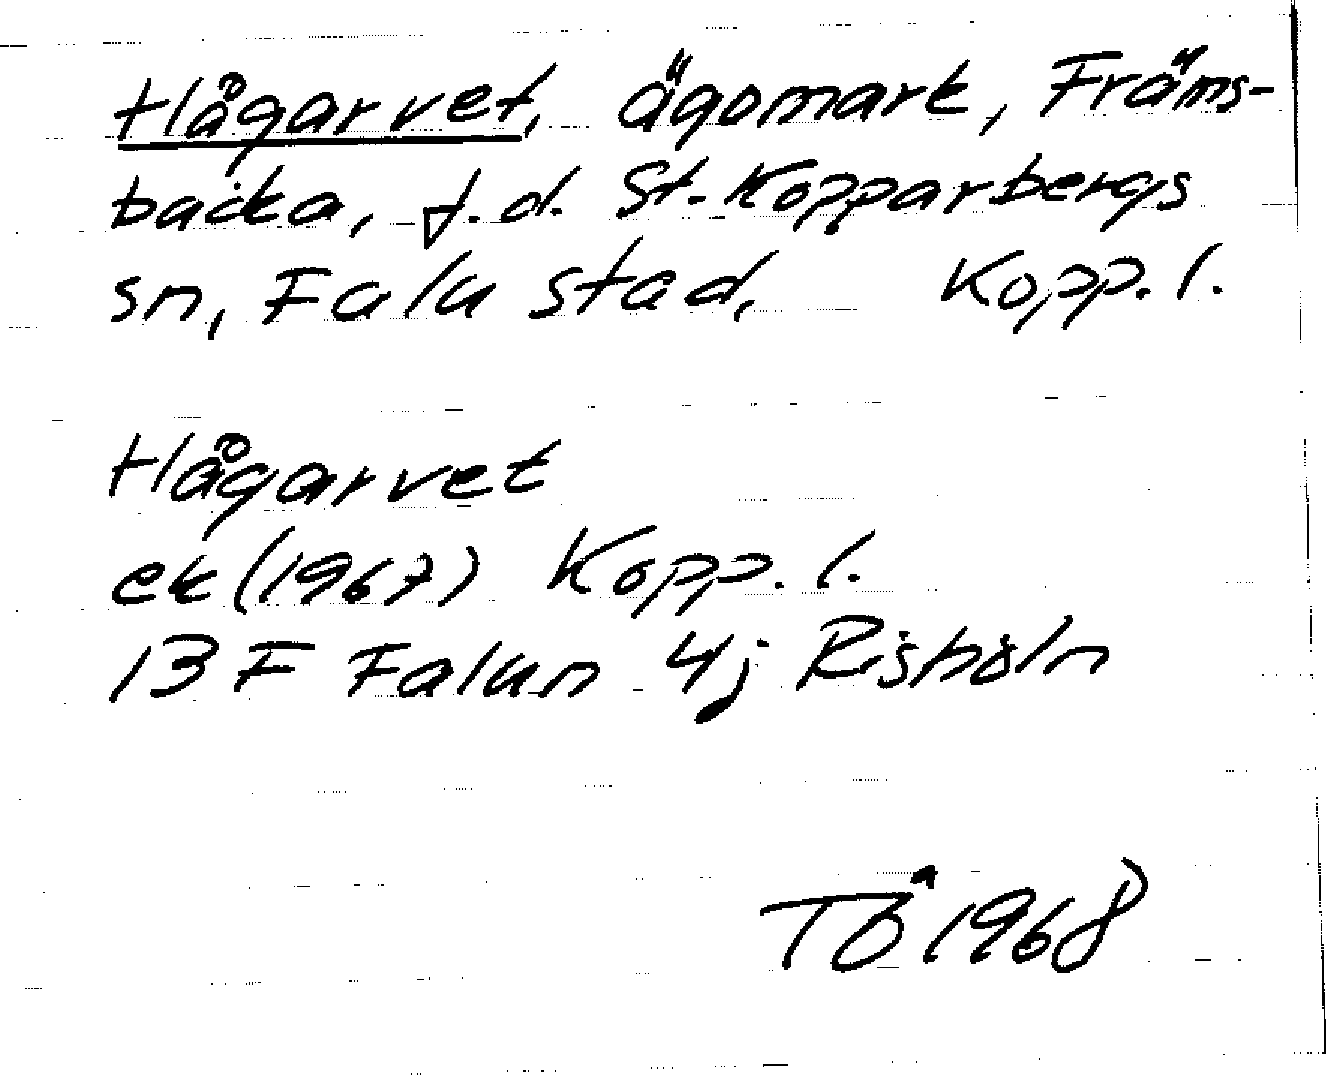 Hågarvet, ägomark, Främs-
backa, f.d. St. Kopparbergs
sn, Falu stad, Kopp.l.
Hågarvet
ek (1967) Kopp.l.
13 F Falun 4j Risholn
TÖ 1968